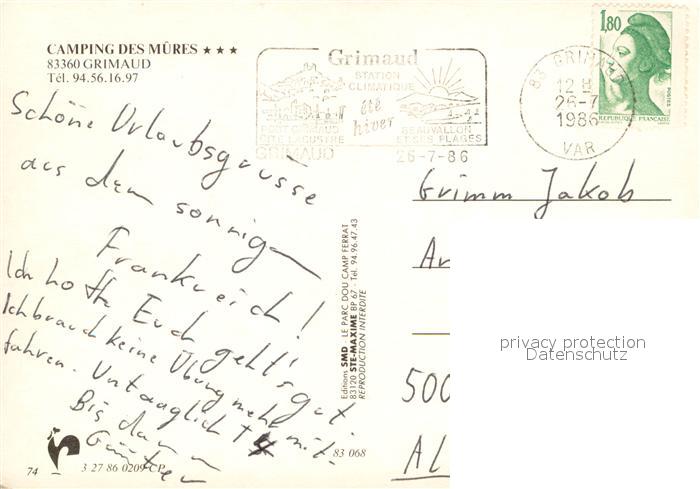 CAMPING DES MÛRES ★★★
83360 GRIMAUD
Tél. 94.56.16.97
Grimaud
STATION
CLIMATIQUE
été
hiver
PORT GRIMAUD
CITÉ LACUSTRE
BEAUVALLON
ET SES PLAGES
GRIMAUD
26-7-86
83 GRIMAUD
12 H
26-7
1986
VAR
1,80
POSTES
REPUBLIQUE FRANÇAISE
Schöne Urlaubsgrüsse
aus dem sonnigen
Frankreich!
Ich hoffe Euch geht's gut.
Ich brauch keine Übung mehr mit-
fahren. Untauglich
Bis dann
Günther
Grimm Jakob
500
AL
Editions SMD - LE PARC DOU CAMP FERRAT
83120 STE-MAXIME BP 67 - Tél. 94.96.47.43
REPRODUCTION INTERDITE
privacy protection
Datenschutz
74
3 27 86 0209 CP
83 068